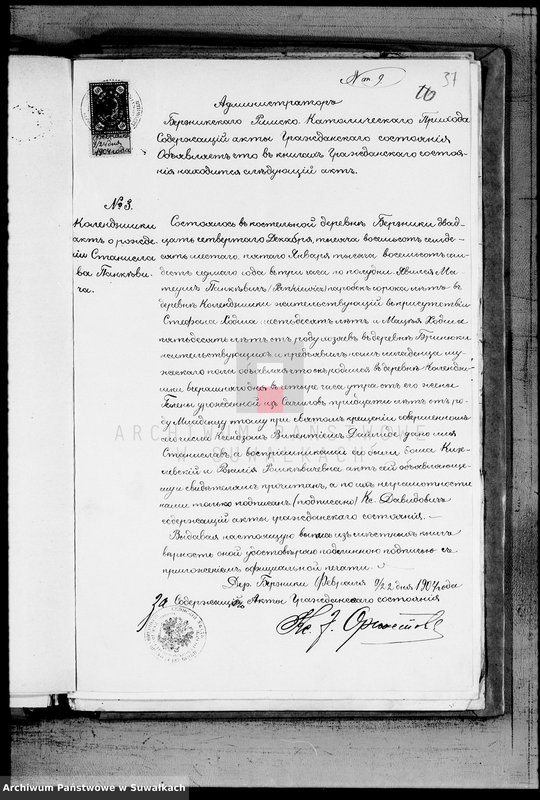 № 9
37
Администраторъ
Бержникскаго Римско Католическаго Прихода
Содержащій акты Гражданскаго состоянія
Объявляетъ что въ книгахъ Гражданскаго состоя-
нія находится слѣдующій актъ.
№ 3.
Колендзишки
актъ о рожде-
ніи Станисла-
ва Панкеви-
ча.
Состоялось въ костельной деревнѣ Бержники двад-
цать четвертаго Декабря, тысяча восемьсотъ семьде-
сятъ шестаго, пятаго Января тысяча восемьсотъ семь-
десятъ седьмаго года въ три часа по полудни. Явился Ма-
теушъ Панкевичъ паробокъ сорока лѣтъ въ
деревнѣ Колендзишки жительствующій въ присутствіи
Стефана лѣтъ и Мацѣя
пятьдесятъ лѣтъ отъ роду въ деревнѣ
жительствующихъ и предъявилъ намъ младенца му-
жескаго пола объявляя что онъ родился въ деревнѣ Колендзи-
шки вчерашняго дня въ четыре часа утра отъ его жены
Елены урожденной изъ тридцати лѣтъ отъ ро-
ду. Младенцу этому при святомъ крещеніи совершенномъ
сего числа Ксендзомъ Викентіемъ дано имя
Станиславъ, а восприемниками его были
и актъ сей объявляюще-
му и свидѣтелямъ прочитанъ, а по ихъ неграмотности
нами только подписанъ (подписано) Кс. Давидовичъ
содержащій акты гражданскаго состоянія.
Выдавая настоящую выпись изъ мѣстныхъ книгъ
вѣрность оной удостовѣряю подлинною подписью съ
приложеніемъ официальной печати.
Дер. Бержники Февраля 9/22 дня 1904 года
За Содержащаго Акты Гражданскаго состоянія
Кс.
ARCHIWUM PAŃSTWOWE
W SUWAŁKACH
Archiwum Państwowe w Suwałkach